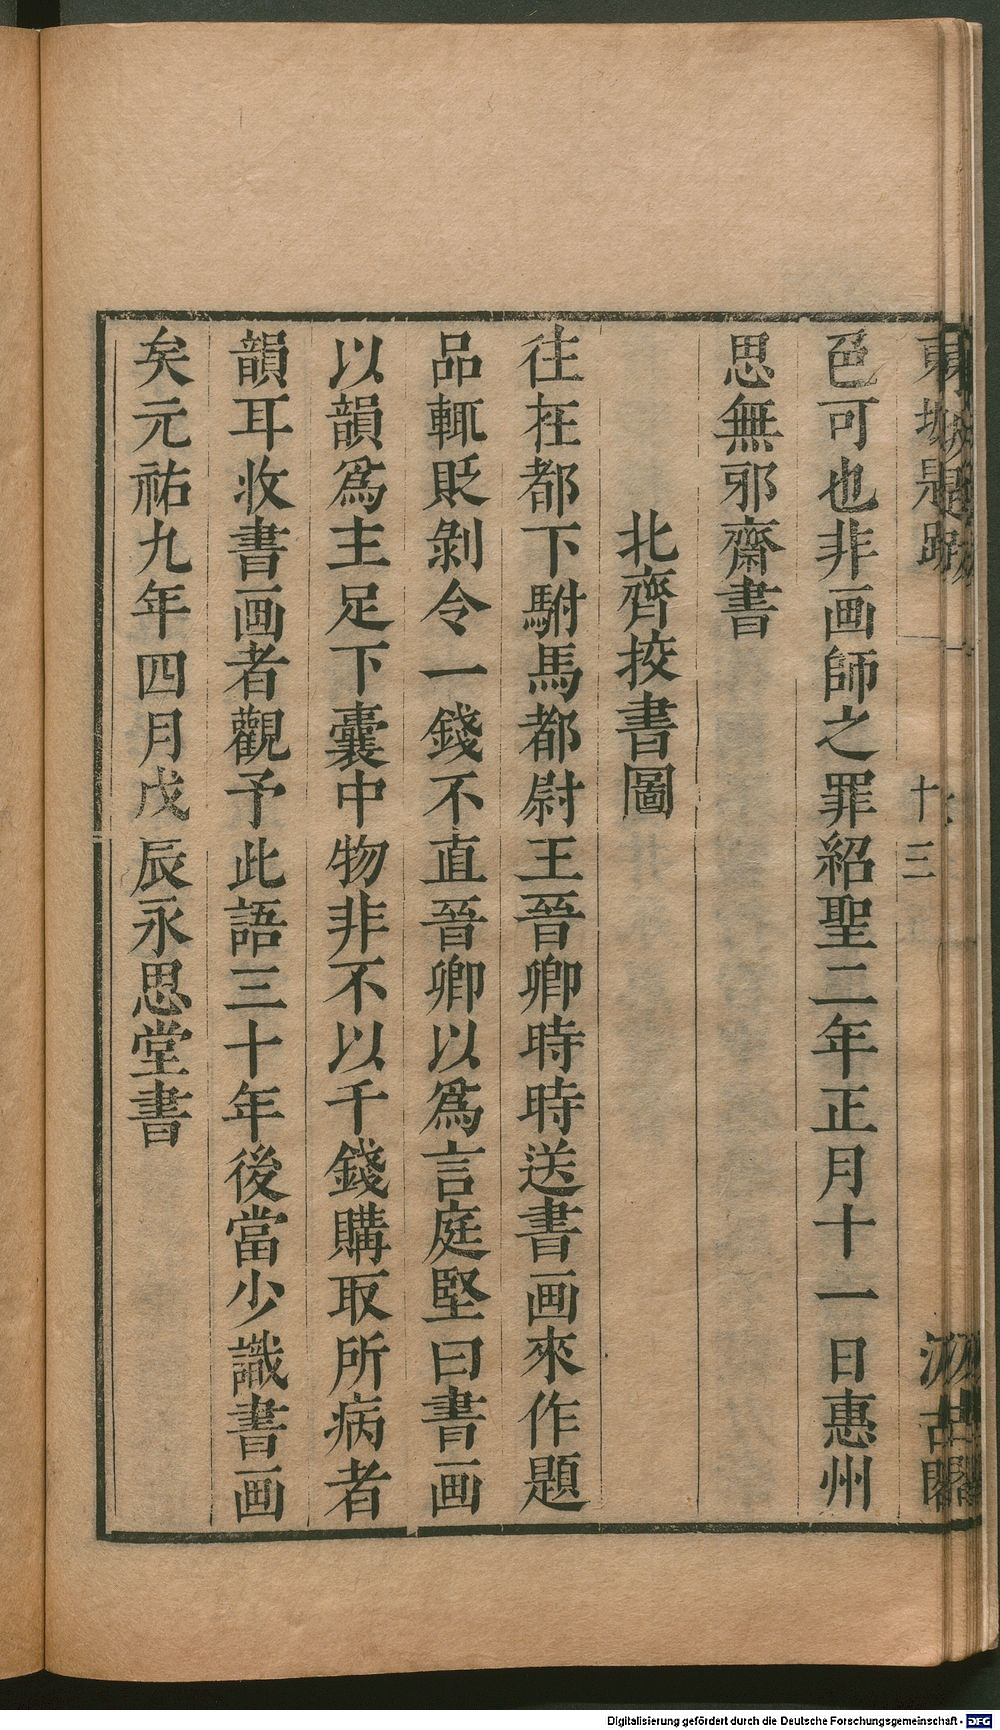 東坡題跋
十三
汲古閣
色可也非画師之罪紹聖二年正月十一日惠州
思無邪齋書
北齊挍書圖
往在都下駙馬都尉王晉卿時時送書画來作題
品輒貶剝令一錢不直晉卿以爲言庭堅曰書画
以韻爲主足下囊中物非不以千錢購取所病者
韻耳收書画者觀予此語三十年後當少識書画
矣元祐九年四月戊辰永思堂書
Digitalisierung gefördert durch die Deutsche Forschungsgemeinschaft - DFG